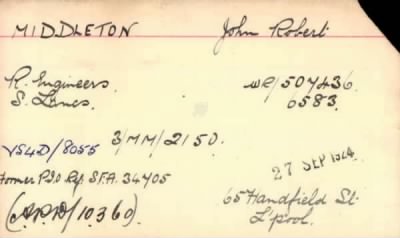 MIDDLETON John Robert
R. Engineers. WR/507436.
S. Lancs. 6583.
VS4D/8055 3/MM/2150.
27 SEP 1924
Former P.I.O. Ry. S.F.A. 34705
65 Handfield St.
(A.P.D/10360). L'pool.